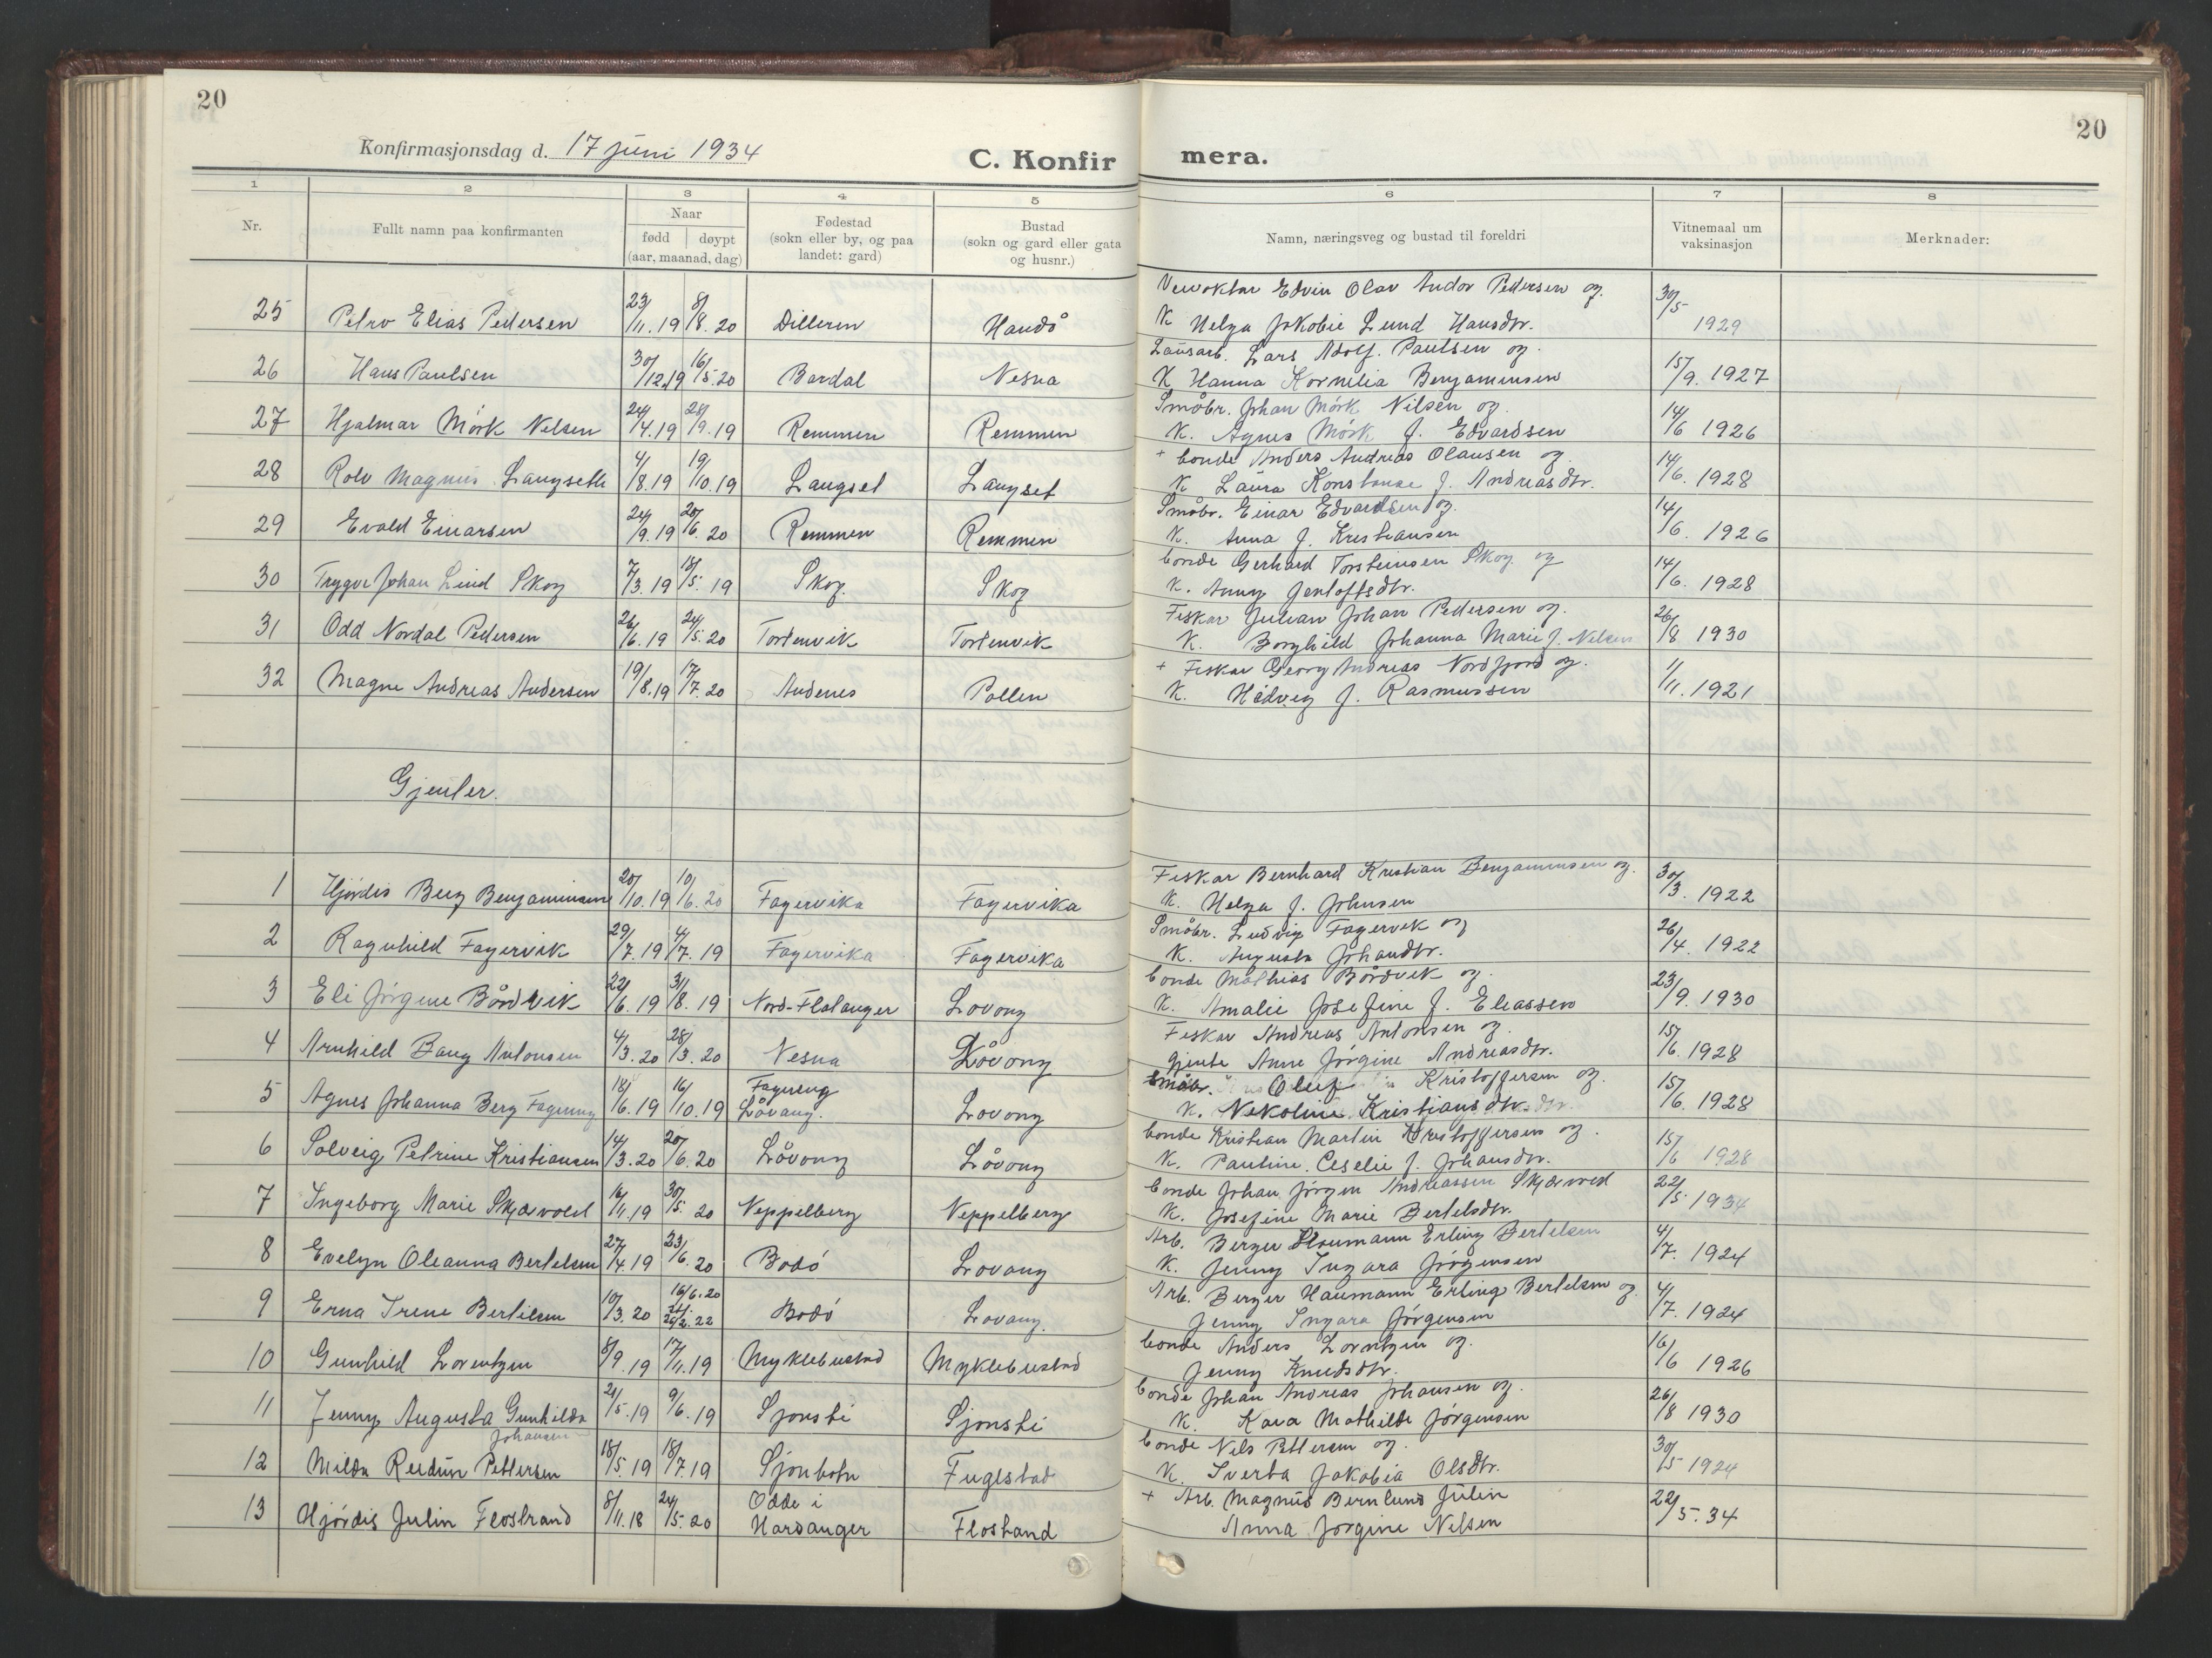 20
20
Konfirmasjonsdag d. 17 juni 1934
C. Konfir mera.
1 2 3 4 5 6 7 8
Nr.
Fullt namn paa konfirmanten
Naar
fødd døypt
(aar, maanad, dag)
Fødestad
(sokn eller by, og paa
landet: gard)
Bustad
(sokn og gard eller gata
og husnr.)
Namn, næringsveg og bustad til foreldri
Vitnemaal um
vaksinasjon
Merknader:
Edvin Olav Andor Pedersen og
25 Petro Elias Pedersen 23/11.19 8/8.20 Dilleren Handö K Helga Jakobie Lund Hansdtr. 30/5 1929
Lausarb. Lars Adolf Paulsen og
26 Hans Paulsen 30/12.19 16/5.20 Bardal Nesna K Hanna Kornelia Benjaminsen 15/9. 1927
Småbr. Johan Mörk Nilsen og
27 Hjalmar Mörk Nilsen 24/4.19 28/9.19 Remmen Remmen K. Agnes Mörk f. Edvardsen 14/6 1926
+ bonde Anders Andreas Olausen og
28 Rolv Magnus Langseth 4/8.19 19/10.19 Langset Langset K Laura Konstanse f. Andreasdtr. 14/6. 1928
Småbr. Einar Edvardsen og
29 Evald Einarsen 24/9.19 20/6.20 Remmen Remmen K. Anna f. Kristiansen 14/6. 1926
bonde Gerhard Torsteinsen Skog og
30 Trygve Johan Lind Skog 7/3.19 18/5.19 Skog Skog K. Anny Jentoftsdtr. 14/6. 1928
Fiskar Julian Johan Pedersen og
31 Odd Nordal Pedersen 26/6.19 24/5.20 Tortenvik Tortenvik K. Borghild Johanna Marie f. Nilsen 26/8 1930
+ Fiskar Georg Andreas Nordfjord og
32 Magne Andreas Andersen 19/8.19 17/7.20 Andenes Pollen K. Hedvig f. Rasmussen 1/11. 1921
Gjenter.
Fiskar Bernhard Kristian Benjaminsen og
1 Hjördis Berg Benjaminsen 20/10.19 10/6.20 Fagervika Fagervika K. Helga f. Johnsen 30/3. 1922
Småbr. Ludvig Fagervik og
2 Ragnhild Fagervik 29/7.19 4/7.19 Fagervika Fagervika K. Augusta Johandtr. 26/4. 1922
bonde Mathias Bårdvik og
3 Eli Jörgine Bårdvik 22/6.19 31/8.19 Nord-Flatanger Lovong K. Amalie Josefine f. Eliassen 23/9. 1930
Fiskar Andreas Antonsen og
4 Arnhild Bang Antonsen 4/3.20 28/3.20 Nesna Lövong Gjente Anne Jörgine Andreasdtr. 15/6. 1928
Småbr. Oluf Kristoffersen og
5 Agnes Johanna Berg Fagereng 18/6.19 16/10.19 Fagereng Lövang. Lovong K. Nekoline Kristiansdtr. 15/6. 1928
bonde Kristian Martin Kristoffersen og
6 Solveig Petrine Kristiansen 14/3.20 20/6.20 Låvong Låvong K. Pauline Ceselie f. Johansdtr. 15/6 1928
bonde Johan Jörgen Andreassen Skjærvold
7 Ingeborg Marie Skjævold 16/11.19 30/5.20 Neppelberg Neppelberg K. Josefine Marie Bertelsdtr. 22/5 1934
Arb. Berger Haumann Erling Bertelsen
8 Evelyn Oleanna Bertelsen 27/4.19 23/6.20 Bodó Lovang K. Jenny Ingara Jörgensen 4/7. 1924
Arb. Berger Haumann Erling Bertelsen og
9 Erna Irene Bertelsen 10/3.20 16/6.20 Bodó Lovang. Jenny Ingara Jörgensen 4/7. 1924
bonde Anders Lorntzen og
10 Gunhild Lorentzen 8/9.19 17/11.19 Myklebustad Myklebustad Jenny Knudsdtr. 16/6 1926
bonde Johan Andreas Johansen og
11 Jenny Augusta Gunhilda Johansen 21/5.19 9/6.19 Sjonsti Sjonsti K. Kara Mathilde Jörgensen 26/8 1930
bonde Nils Pettersen og
12 Milda Reidun Pettersen 18/5.19 18/7.19 Sjonbotn Fuglstad K. Sverta Jakobia Olsdtr. 30/5 1924
+ Arb. Magnus Bernlund Julin
13 Hjördis Julin Flostrand 8/11.18 24/5.20 Odde i Hardanger Flostrand Anna Jörgine Nelsen 22/5.34